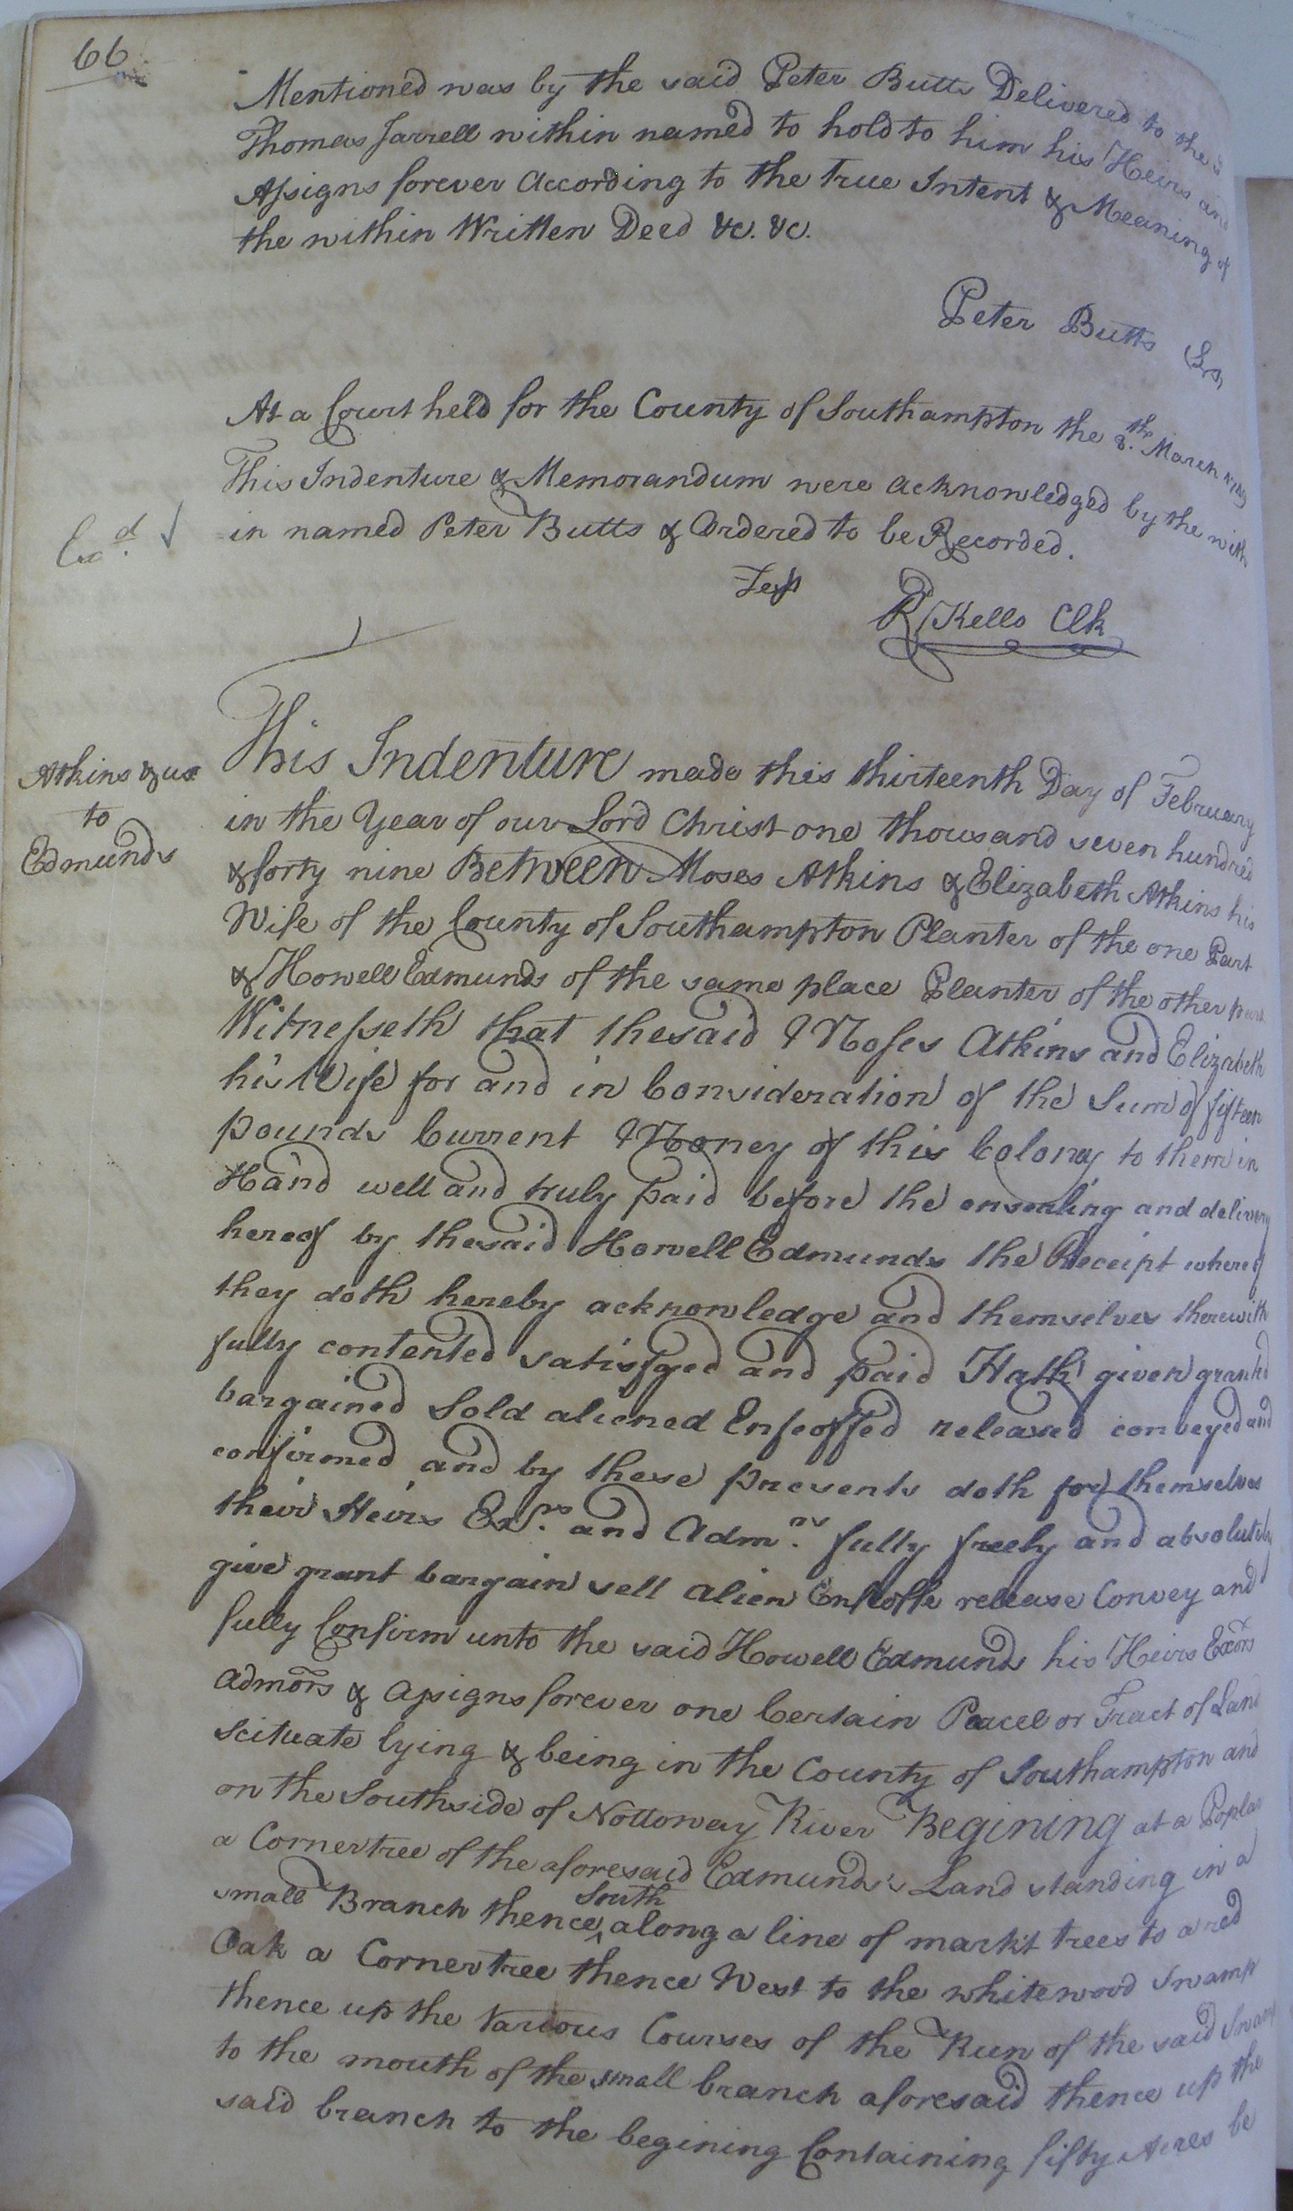 66
Mentioned was by the said Peter Butts Delivered to the sd
Thomas Jarrell within named to hold to him his Heirs and
Assigns forever According to the true Intent & Meaning of
the within Written Deed &c. &c.
Peter Butts
At a Court held for the County of Southampton the 8.th March 1749
This Indenture & Memorandum were acknowledged by the with
in named Peter Butts & Ordered to be Recorded.
Exd.
Test
R Kello Clk
Atkins & ux
to
Edmunds
This Indenture made this thirteenth Day of February
in the Year of our Lord Christ one thousand seven hundred
& forty nine Between Moses Atkins & Elizabeth Atkins his
Wife of the County of Southampton Planter of the one Part
& Howell Edmunds of the same place Planter of the other part
Witnesseth that the said Moses Atkins and Elizabeth
his Wife for and in Consideration of the Sum of fifteen
pounds Current Money of this Colony to them in
Hand well and truly paid before the ensealing and delivery
hereof by the said Howell Edmunds the Receipt whereof
they doth hereby acknowledge and themselves therewith
fully contented satisfyed and paid Hath given granted
bargained Sold aliened Enfeoffed released conveyed and
confirmed and by these presents doth for themselves
their Heirs Exrs. and Admrs. fully freely and absolutely
give grant bargain sell alien Enfeoffe release Convey and
fully Confirm unto the said Howell Edmunds his Heirs Exors
Admors & Assigns forever one Certain Peacel or Tract of Land
Scituate lying & being in the County of Southampton and
on the Southside of Nottoway River Begining at a Poplar
a Cornertree of the aforesaid Edmunds's Land standing in a
small Branch thence South along a line of markt trees to a red
Oak a Cornertree thence West to the whitewood Swamp
thence up the Various Courses of the Run of the said Swamp
to the mouth of the small branch aforesaid thence up the
said branch to the begining Containing fifty Acres be